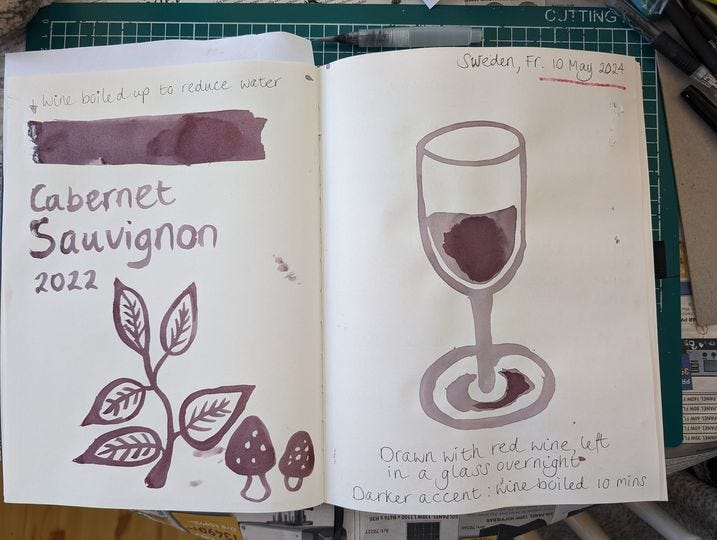 CUTTING
wine boiled up to reduce water
Cabernet
Sauvignon
2022
Sweden, Fr. 10 May 2024
Drawn with red wine, left
in a glass overnight
Darker accent: wine boiled 10 mins